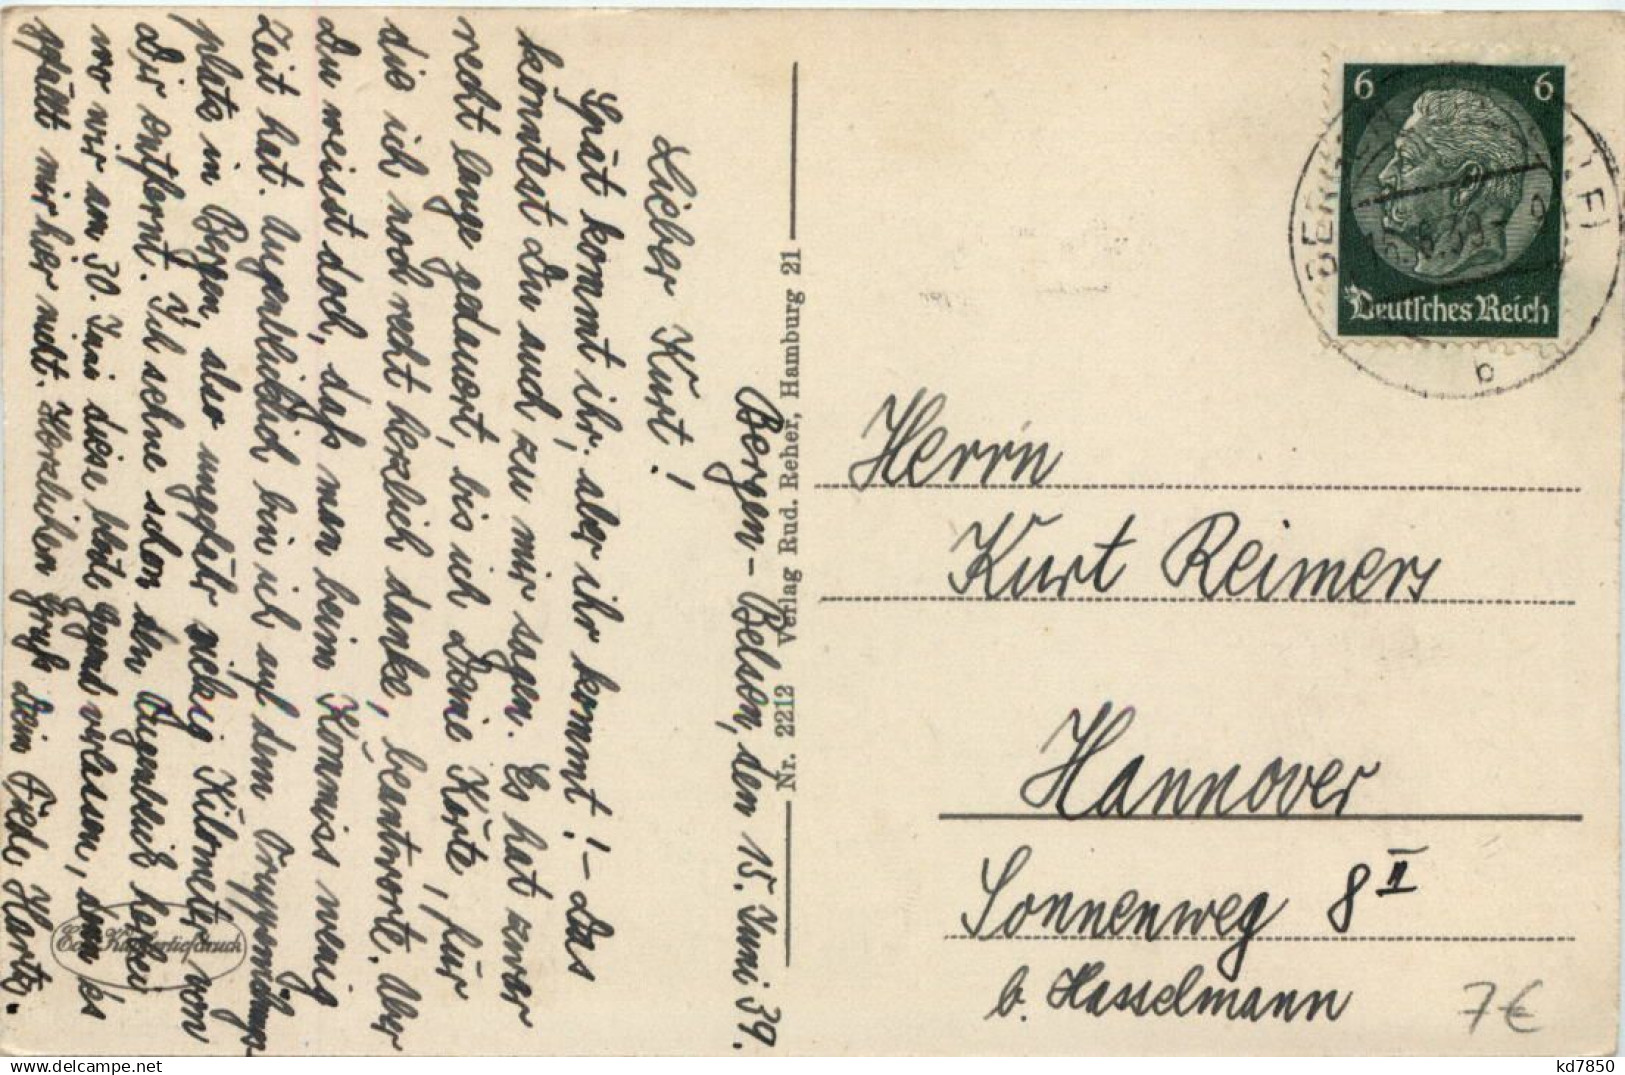 Bergen-Belsen, den 15. Juni 39.
Lieber Kurt!
Spät kommt ihr, aber ihr kommt! - Das
konntest Du auch zu mir sagen. Es hat zwar
recht lange gedauert, bis ich Deine Karte, für
die ich noch recht herzlich danke, beantworte. Aber
Du weisst doch, daß man beim Kommiss wenig
Zeit hat. Augenblicklich bin ich auf dem Truppenübungs-
platz in Bergen, also ungefähr siebzig Kilometer von
Dir entfernt. Ich sehne schon den Augenblick herbei
wo wir am 30. Juni diese Gegend verlassen, denn es
gefällt mir hier nicht. Herzlichen Gruß Dein
Echt Kupfertiefdruck
Nr. 2212 Verlag Rud. Reher, Hamburg 21
6 6
Deutsches Reich
b
Herrn
Kurt Reimers
Hannover
Sonnenweg 8 II
b. Hasselmann
7€
kd7850